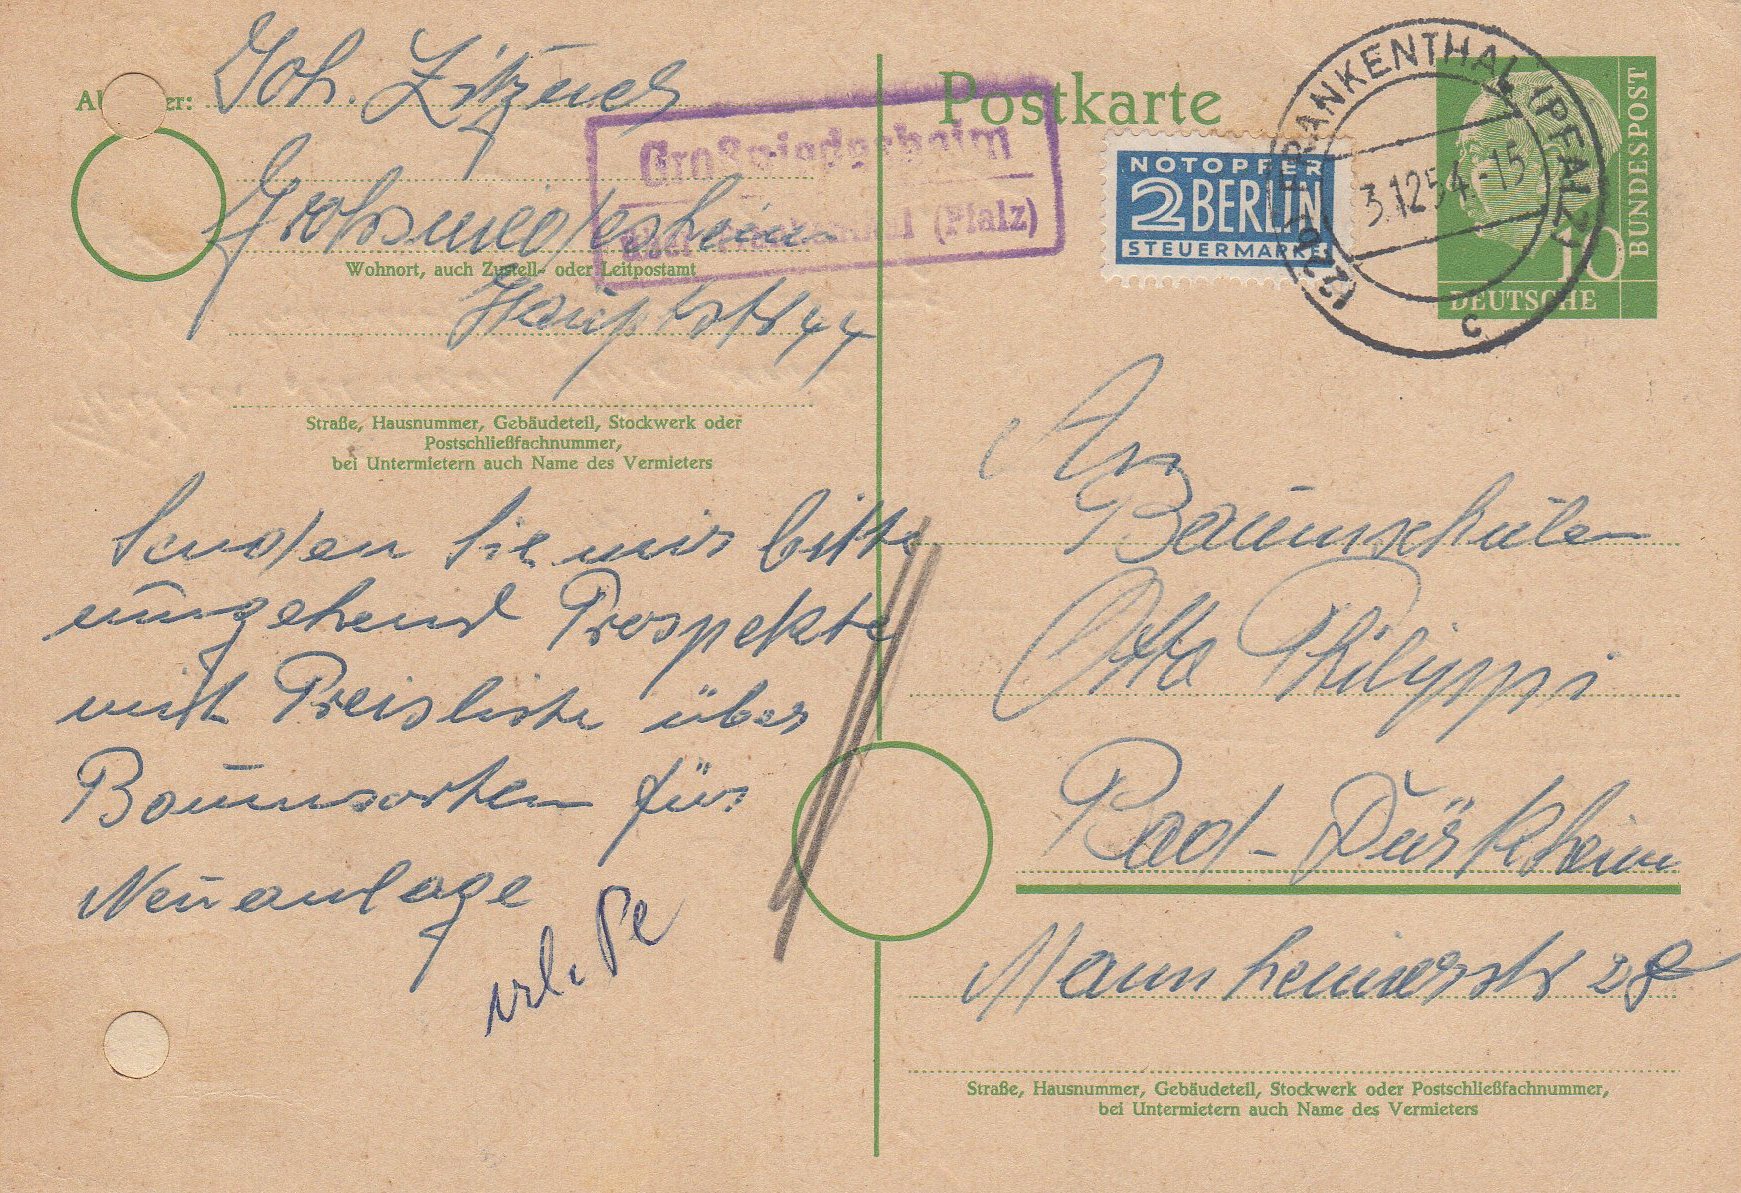 Joh. Zitzner
Grohsniedesheim
Wohnort, auch Zustell- oder Leitpostamt
Hauptstr 44
Straße, Hausnummer, Gebäudeteil, Stockwerk oder
Postschließfachnummer,
bei Untermietern auch Name des Vermieters
Senden Sie mir bitte
umgehend Prospekte
mit Preisliste über
Baumsorten für
Neuanlage
Großniedesheim
über Frankenthal (Pfalz)
Postkarte
NOTOPFER
2 BERLIN
STEUERMARKE
FRANKENTHAL (PFALZ)
3.12.54.-15
c
DEUTSCHE
BUNDESPOST
10
An
Baumschulen
Otto Philippi
Bad-Dürkheim
Mannheimerstr 28
Straße, Hausnummer, Gebäudeteil, Stockwerk oder Postschließfachnummer,
bei Untermietern auch Name des Vermieters